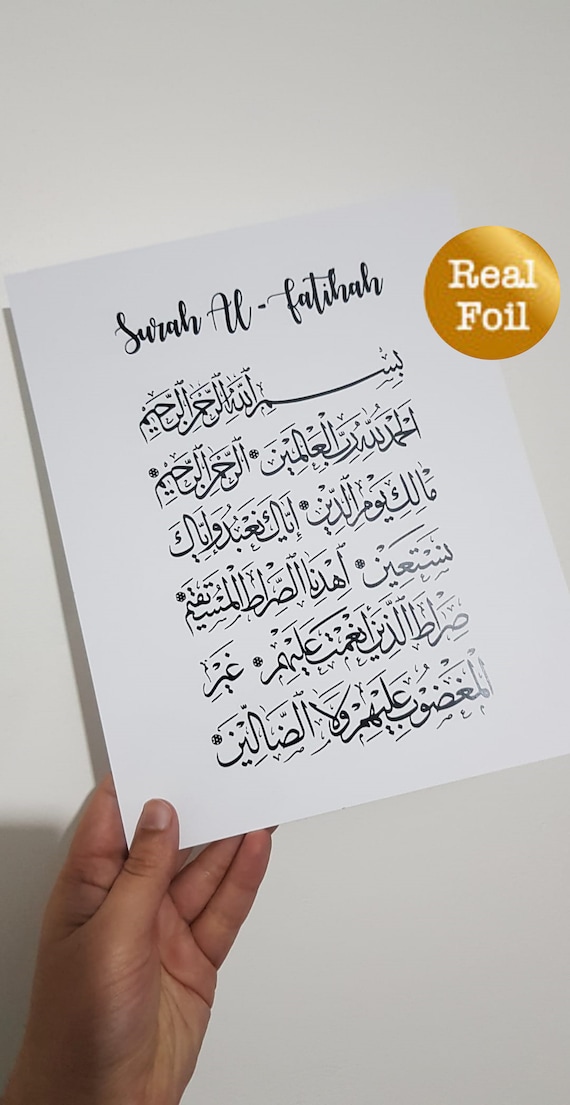 Surah Al-fatihah
بِسْمِ اللَّهِ الرَّحْمَٰنِ الرَّحِيمِ
الْحَمْدُ لِلَّهِ رَبِّ الْعَالَمِينَ * الرَّحْمَٰنِ الرَّحِيمِ *
مَالِكِ يَوْمِ الدِّينِ * إِيَّاكَ نَعْبُدُ وَإِيَّاكَ
نَسْتَعِينُ * اهْدِنَا الصِّرَاطَ الْمُسْتَقِيمَ *
صِرَاطَ الَّذِينَ أَنْعَمْتَ عَلَيْهِمْ * غَيْرِ
الْمَغْضُوبِ عَلَيْهِمْ وَلَا الضَّالِّينَ *
Real
Foil